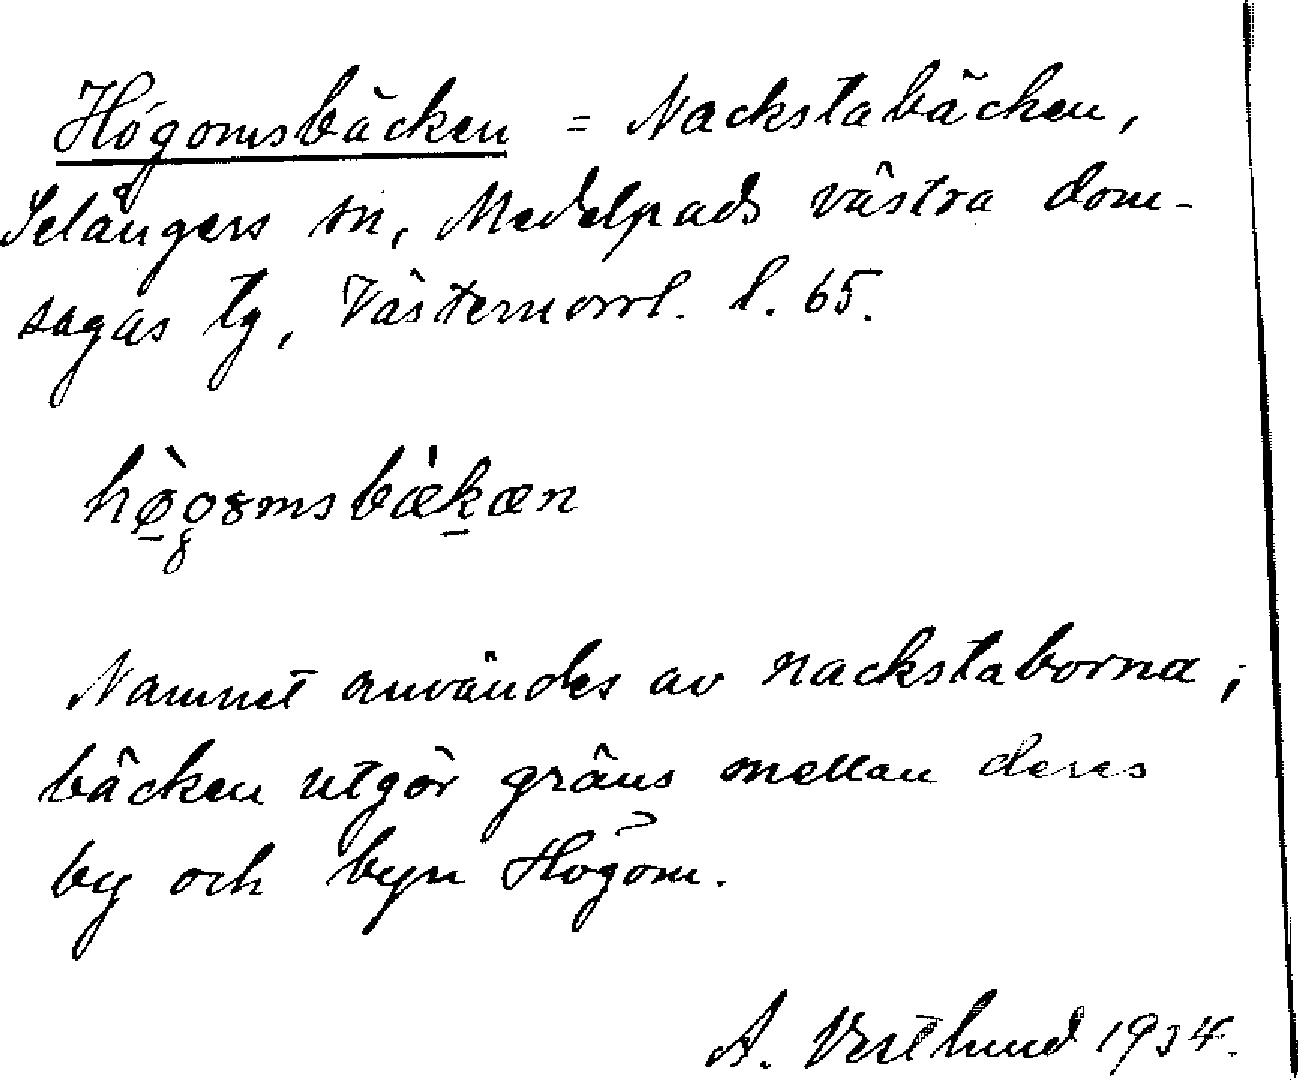 Högomsbäcken = Nackstabäcken,
Selångers sn, Medelpads västra dom-
sagas tg, Västernorrl. l. 65.
Namnet användes av nackstaborna;
bäcken utgör gräns mellan deras
by och byn Högom.
A. Vestlund 1934.